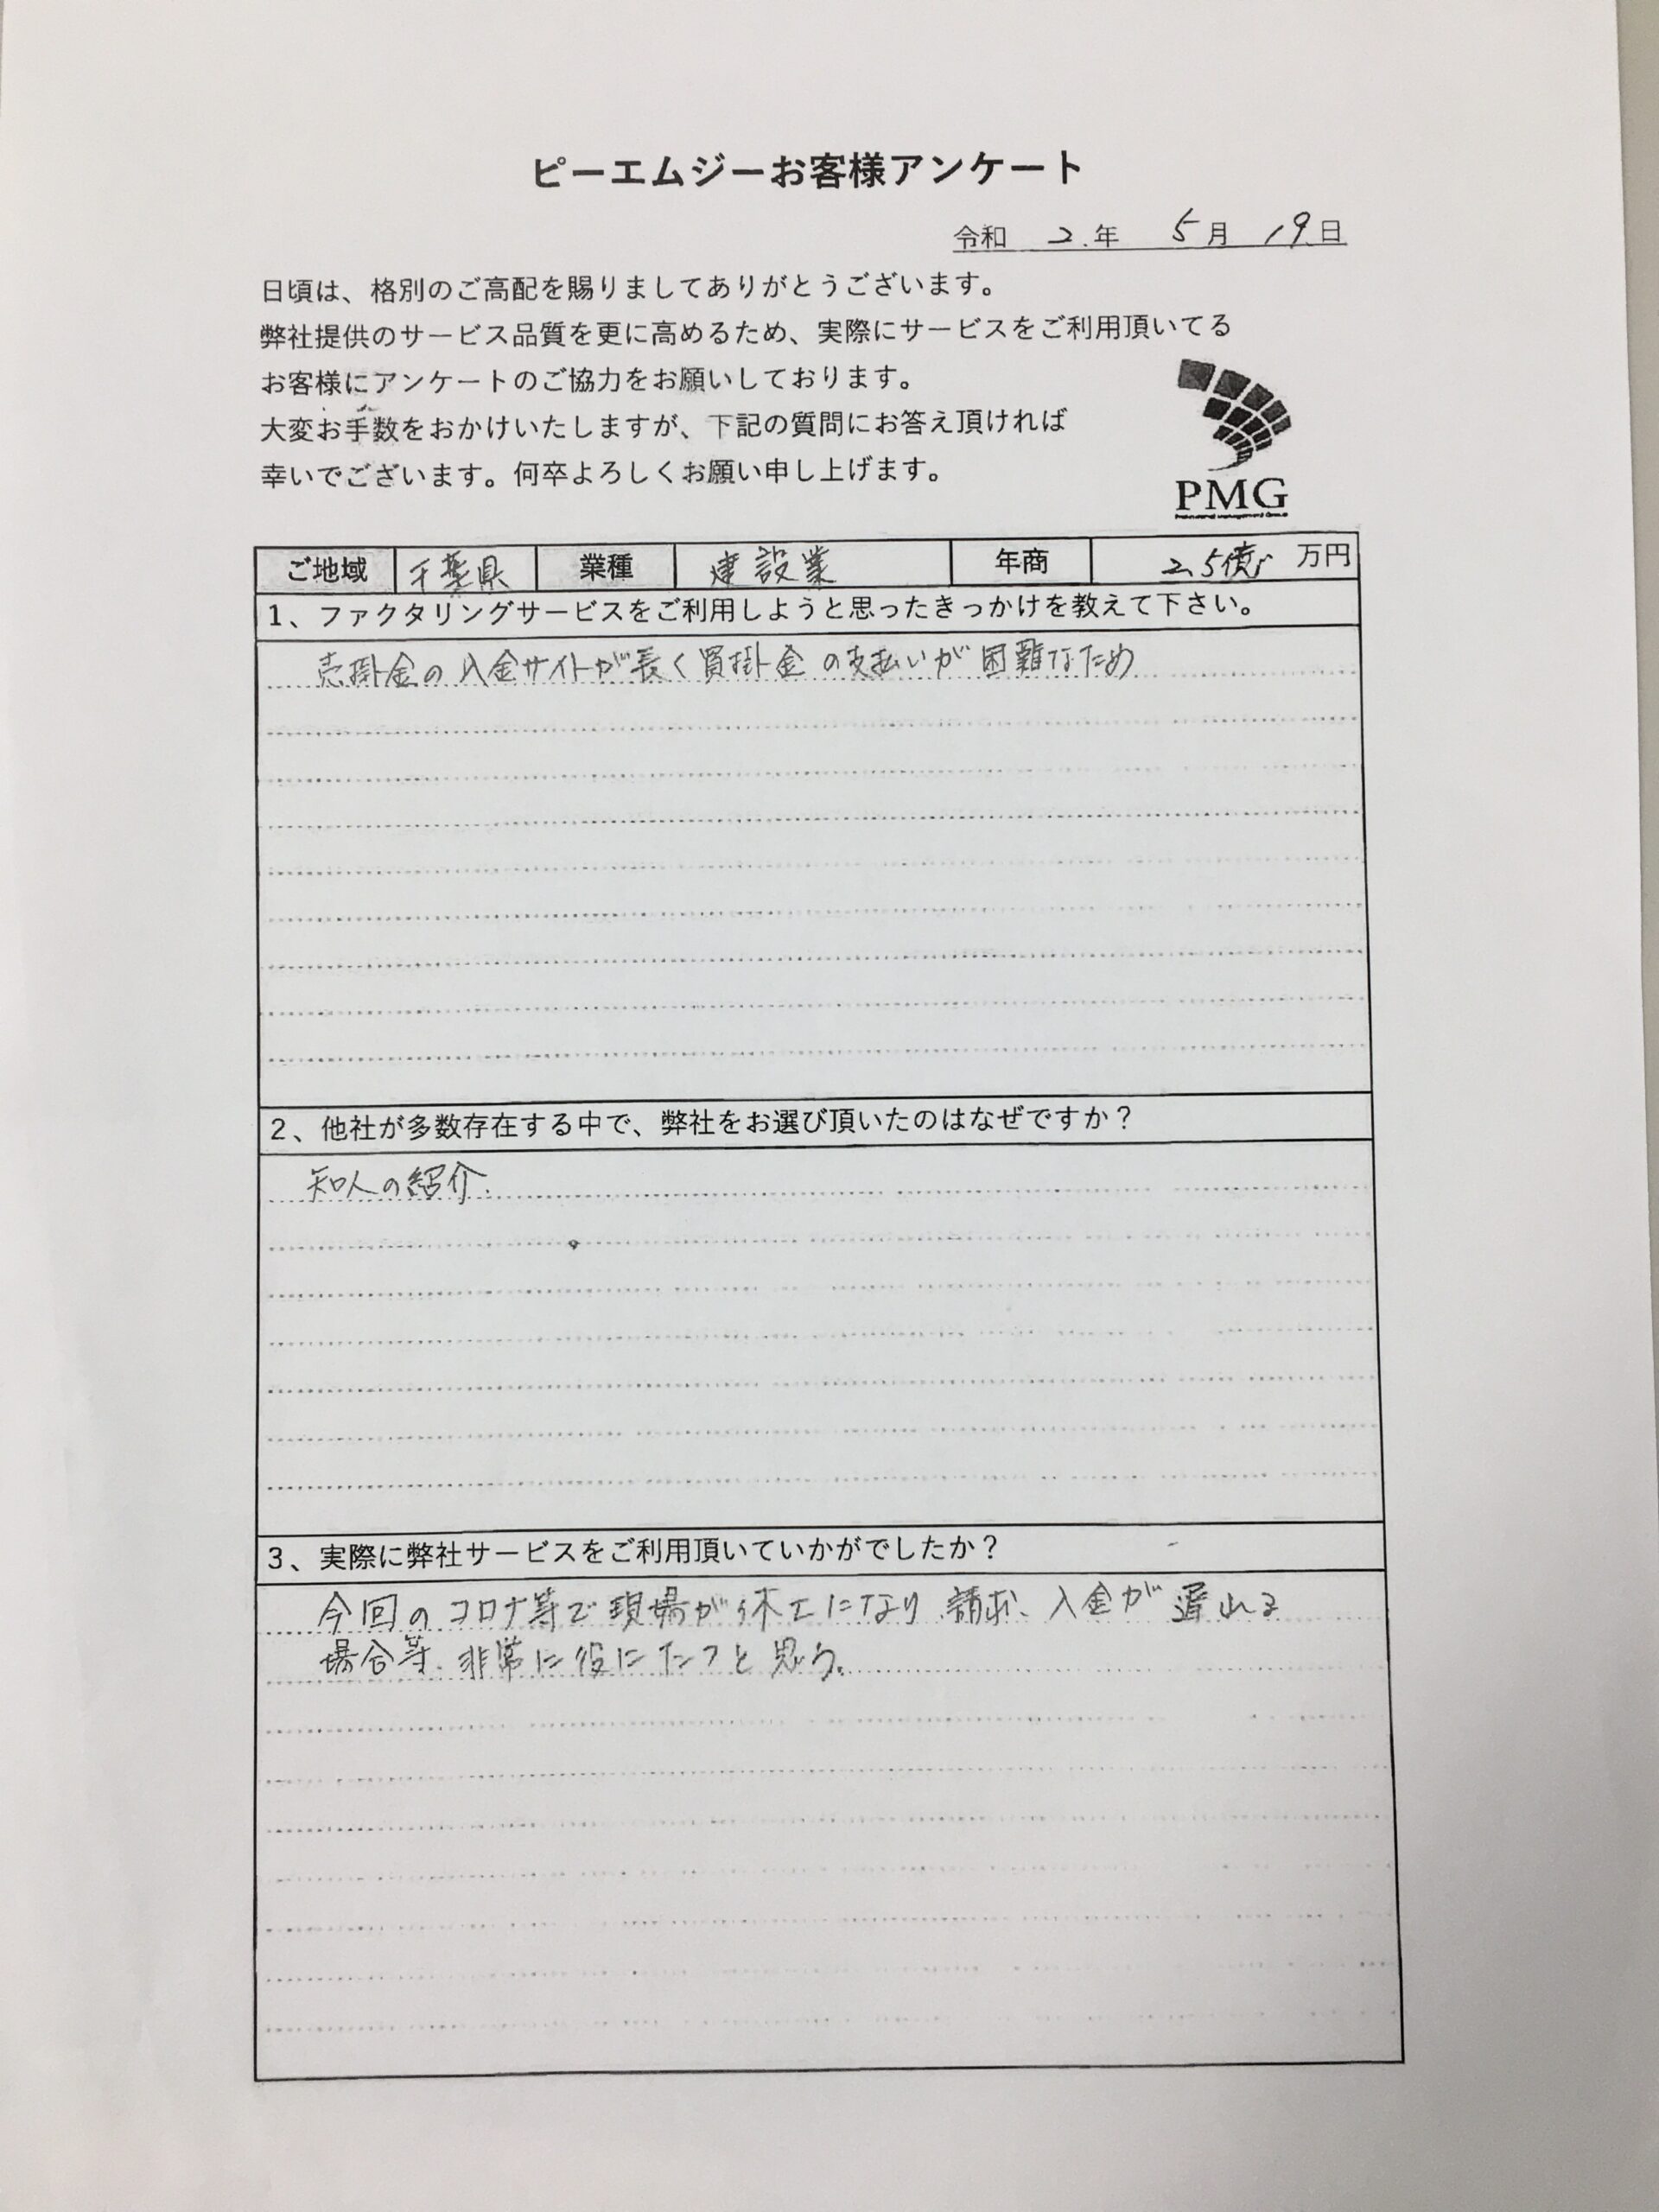 ピーエムジーお客様アンケート
令和 2年 5月 19日
日頃は、格別のご高配を賜りましてありがとうございます。
弊社提供のサービス品質を更に高めるため、実際にサービスをご利用頂いてる
お客様にアンケートのご協力をお願いしております。
大変お手数をおかけいたしますが、下記の質問にお答え頂ければ
幸いでございます。何卒よろしくお願い申し上げます。
PMG
Professional Management Group
ご地域 千葉県 業種 建設業 年商 2.5億 万円
1、ファクタリングサービスをご利用しようと思ったきっかけを教えて下さい。
売掛金の入金サイトが長く買掛金の支払いが困難なため
2、他社が多数存在する中で、弊社をお選び頂いたのはなぜですか？
知人の紹介.
3、実際に弊社サービスをご利用頂いていかがでしたか？
今回のコロナ等で現場が休工になり 請求、入金が遅れる
場合等、非常に役にたつと思う。